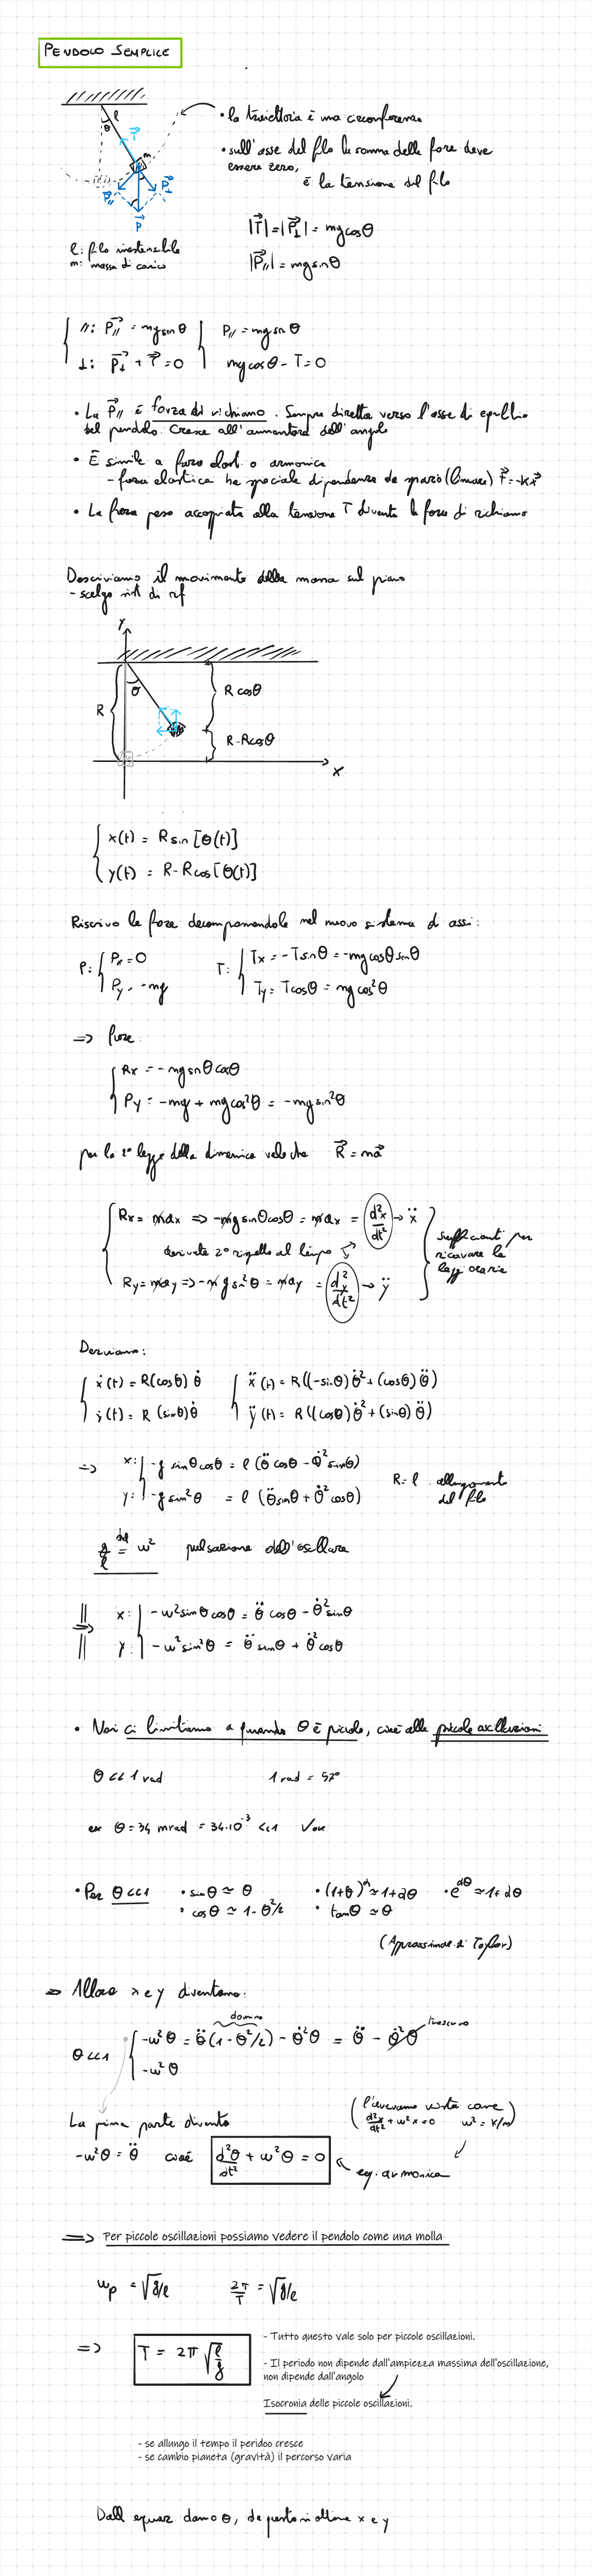 PENDOLO SEMPLICE
l
θ
T
m
P∥
P⊥
P
l: filo inestensibile
m: massa di carico
• la traiettoria è una circonferenza
• sull'asse del filo la somma delle forze deve
essere zero,
è la tensione del filo
|T⃗| = |P⃗⊥| = mg cosθ
|P⃗∥| = mg sinθ
{ //: P⃗∥ = mg sinθ { P∥ = mg sinθ
⊥: P⃗⊥ + T⃗ = 0 mg cosθ - T = 0
• La P⃗∥ è forza di richiamo. Sempre diretta verso l'asse di equilibrio
del pendolo. Cresce all'aumentare dell'angolo
• È simile a forza elast. o armonica
- forza elastica ha speciale dipendenza da spazio (lineare) F⃗ = -kx⃗
• La forza peso accoppiata alla tensione T diventa la forza di richiamo
Descriviamo il movimento della massa sul piano
- scelgo sist di rif
y
θ
R
R cosθ
R-Rcosθ
x
{ x(t) = R sin [θ(t)]
y(t) = R - R cos [θ(t)]
Riscrivo le forze decomponendole nel nuovo sistema di assi:
P: { Px = 0 T: { Tx = -T sinθ = -mg cosθ sinθ
Py = -mg Ty = T cosθ = mg cos²θ
=> forze:
{ Rx = -mg sinθ cosθ
Py = -mg + mg cos²θ = -mg sin²θ
per la 2° legge della dinamica vale che R⃗ = ma⃗
{ Rx = max => -mg sinθ cosθ = max = d²x/dt² → ẍ
derivate 2° rispetto al tempo
Ry = may => -mg sin²θ = may = d²y/dt² → ÿ
sufficienti per
ricavare le
leggi orarie
Deriviamo:
{ ẋ(t) = R(cosθ) θ̇ { ẍ(t) = R((-sinθ) θ̇² + (cosθ) θ̈)
ẏ(t) = R (sinθ) θ̇ ÿ(t) = R((cosθ) θ̇² + (sinθ) θ̈)
=> x: { -g sinθ cosθ = l (θ̈ cosθ - θ̇² sinθ)
y: -g sin²θ = l (θ̈ sinθ + θ̇² cosθ)
R = l : allungamento
del filo
g/l def= ω² pulsazione dell'oscillaz
=> x: { -ω² sinθ cosθ = θ̈ cosθ - θ̇² sinθ
y: -ω² sin²θ = θ̈ sinθ + θ̇² cosθ
• Noi ci limitiamo a quando θ è piccolo, cioè alle piccole oscillazioni
θ << 1 rad 1 rad = 57°
es θ = 34 mrad = 34·10⁻³ << 1
• Per θ<<1 • sinθ ≃ θ • (1+θ)^α ≃ 1+αθ • e^αθ ≃ 1+αθ
• cosθ ≃ 1-θ²/2 • tanθ ≃ θ
(Approssimaz. di Taylor)
=> Allora x e y diventano:
domina
θ<<1 { -ω²θ = θ̈(1-θ²/2) - θ̇²θ = θ̈ - θ̇²θ trascuro
-ω²θ
La prima parte diventa
-ω²θ = θ̈ cioè d²θ/dt² + ω²θ = 0
(l'avevamo vista come
d²x/dt² + ω²x = 0 ω² = K/m)
eq. armonica
=> Per piccole oscillazioni possiamo vedere il pendolo come una molla
ωp = √g/l 2π/T = √g/l
=> T = 2π √l/g
- Tutto questo vale solo per piccole oscillazioni.
- Il periodo non dipende dall'ampiezza massima dell'oscillazione,
non dipende dall'angolo
Isocronia delle piccole oscillazioni.
- se allungo il tempo il peridoo cresce
- se cambio pianeta (gravità) il percorso varia
Dall equaz. diamo θ, da questo si ottiene x e y